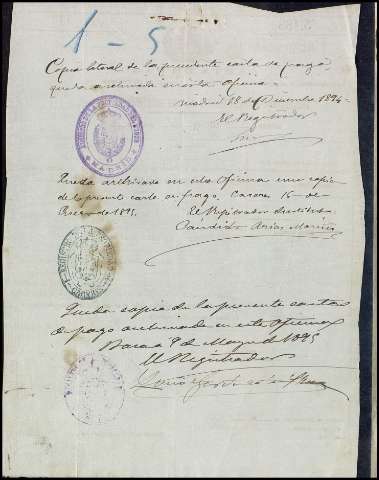 1 - 5
Copia literal de la precedente carta de pago
queda archivada en esta Oficina
Madrid 18 de Diciembre 1894
El Registrador
Queda archivada en esta Oficina una copia
de la presente carta de pago. Caceres 16 de
Enero de 1895.
El Registrador Sustituto
Candido Arias
MADRID
CACERES
Queda copia de la presente carta
de pago archivada en esta Oficina
9 de Mayo de 1895
El Registrador